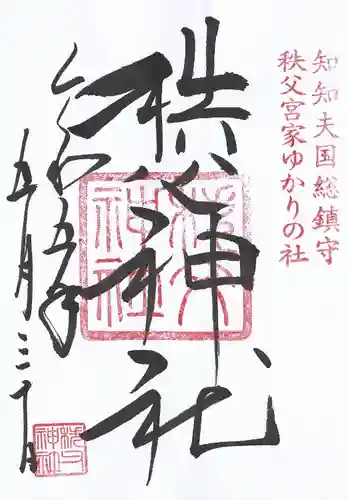 知知夫国総鎮守
秩父宮家ゆかりの社
秩父神社
令和五年
五月三十日
秩父
神社
秩父
神社